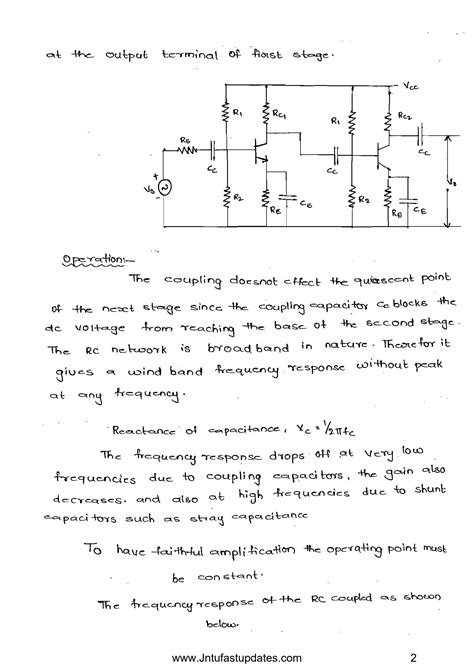 at the output terminal of first stage.
Vcc
R1 Rc1 R1 Rc2
Rs Cc Cc Cc
Vs Vo
R2 RE CE R2 RE CE
Operation:-
The coupling doesnot effect the quiescent point
of the next stage since the coupling capacitor Cc blocks the
dc voltage from reaching the base of the second stage.
The RC network is broadband in nature. Therefor it
gives a wind band frequency response without peak
at any frequency.
Reactance of capacitance, Xc = 1/2πfc
The frequency response drops off at very low
frequencies due to coupling capacitors, the gain also
decreases. and also at high frequencies due to shunt
capacitors such as stray capacitance
To have faithful amplification the operating point must
be constant.
The frequency response of the RC coupled as shown
below.
www.Jntufastupdates.com 2